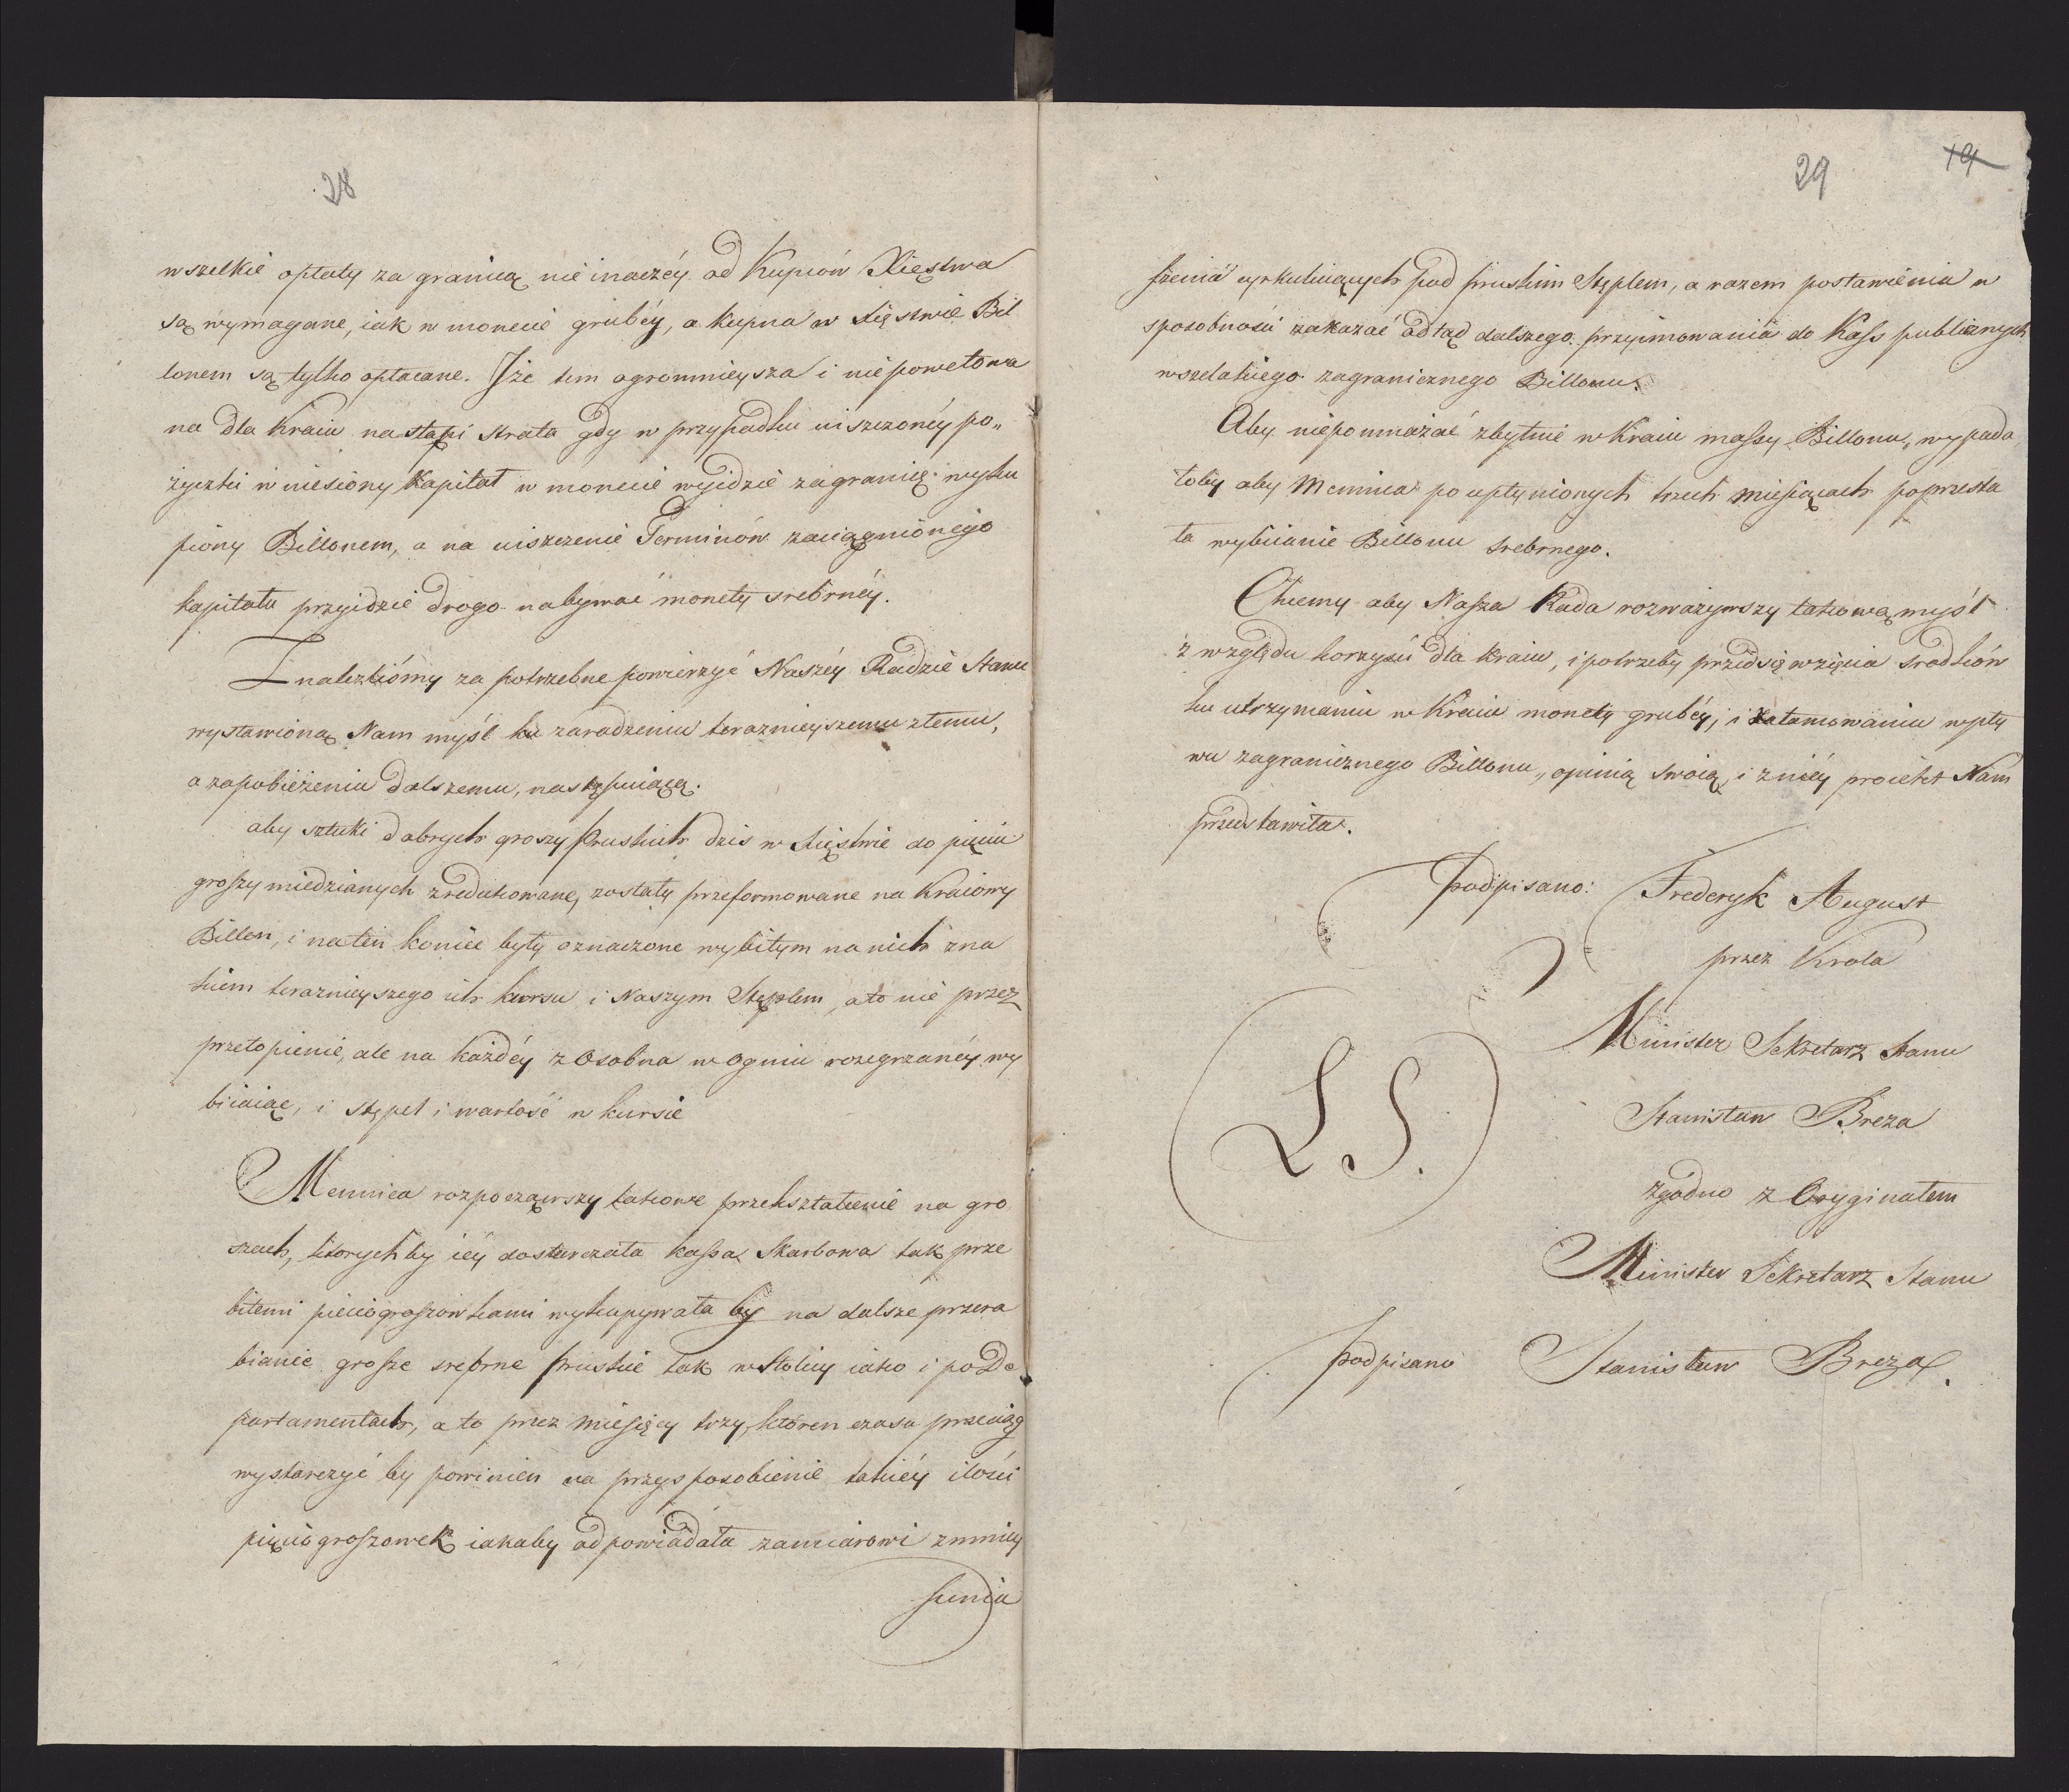 28
wszelkie opłaty za granicą nie inaczéy od Kupców Xięstwa
są wymagane, iak w monecie grubéy, a kupna w Xięstwie Bil
lonem są tylko opłacane. Iże tem ogromnieysza i niepowetowa
na dla Kraiu nastąpi strata gdy w przypadku uiszczonéy po„
życzki wniesiony Kapitał w monecie wyidzie zagranicę wyku
piony Billonem, a na uiszczenie Terminów zaciągnionego
kapitału przyidzie drogo nabywać monety srebrnéy.
Znaleźlismy za potrzebne powierzyć Naszéy Radzie Stanu
wystawioną Nam myśl ku zaradzeniu teraznieyszemu złemu,
a zapobieżeniu dalszemu, następuiącą.
aby sztuki dobrych groszy Pruskich dzis w Xięstwie do pięciu
groszy miedzianych zredukowane, zostały przeformowane na Kraiowy
Billon, i na ten koniec były oznaczone wybitym na nich zna
kiem teraznieyszego ich kursu i Naszym Stęplem, a to nie przez
przetopienie, ale na każdéy z osobna w ogniu rozegrzanéy wy
biiaiąc, i stępel i wartość w kursie
Mennica rozpocząwszy takowe przekształcenie na gro
szach, ktorych by iéy dostarczała kassa Skarbowa tak prze
bitemi pieciogroszowkami wykupywała by na dalsze przera
bianie grosze srebrne pruskie tak w Stolicy iako i po De
partamentach, a to przez miesięcy trzy, któren czasu przeciąg
wystarczyć by powinien na przysposobienie takiéy ilości
pięciogroszowek iakaby odpowiadała zamiarowi zmniey
szenia
29 19
szenia cyrkuluiących pod pruskim Stęplem, a razem postawienia w
sposobności zakazać odtąd dalszego przyimowania do Kass publicznych
wszelakiego zagranicznego Billonu.
Aby niepomnażać zbytnie w Kraiu massy Billonu, wypada
łoby aby Mennica po upłynionych trzech miesiącach poprzesta
ła wybiianie Billonu srebrnego.
Chcemy aby Nasza Rada rozważywszy takową myśl
z względu korzyści dla kraiu, i potrzeby przedsięwzięcia srodków
ku utrzymaniu w Kraiu monety grubéy, i zatamowaniu wpły
wu zagranicznego Billonu, opinią swoią, i z niéy proiekt Nam
przedstawiła.
podpisano: Frederyk August
przez Krola
Minister Sekretarz Stanu
L S.
Stanisław Breza
zgodno z Oryginałem
Minister Sekretarz Stanu
podpisano Stanisław Breza.